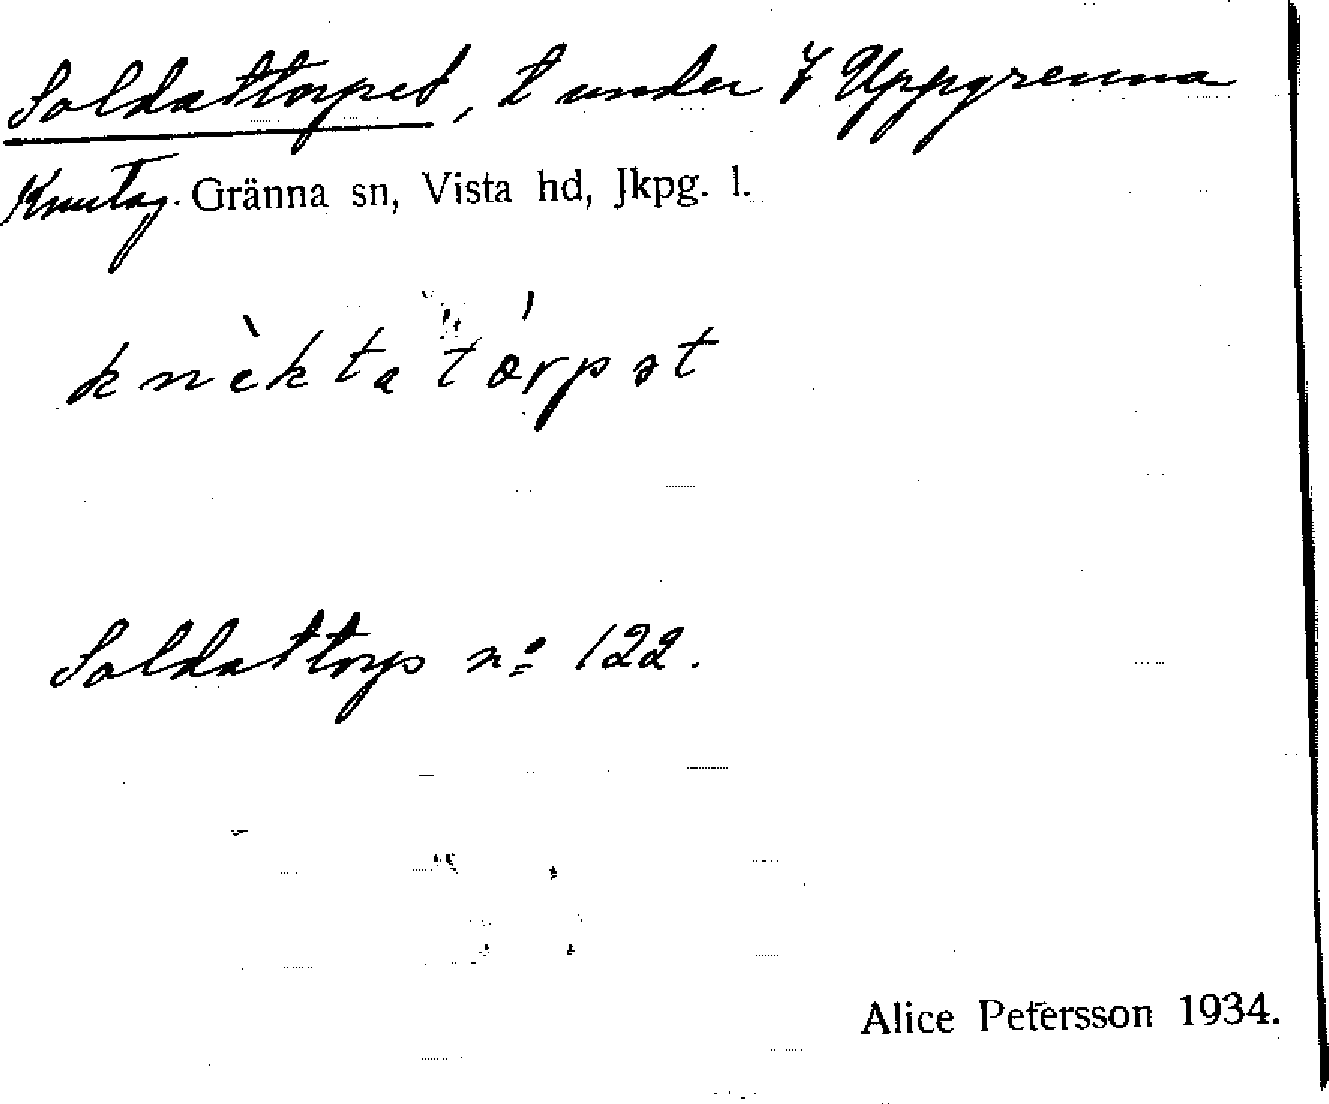 Soldattorpet, t under 7 Uppgrenna
Knutag. Gränna sn, Vista hd, Jkpg. l.
knɛ̀kta tórpət
Soldattorp nº 122.
Alice Petersson 1934.